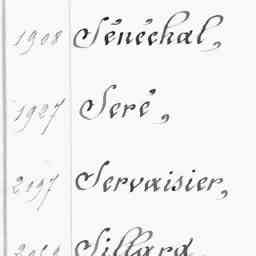 1908 Sénéchal,
1927 Seré,
2197 Servaisier,
Sillard,